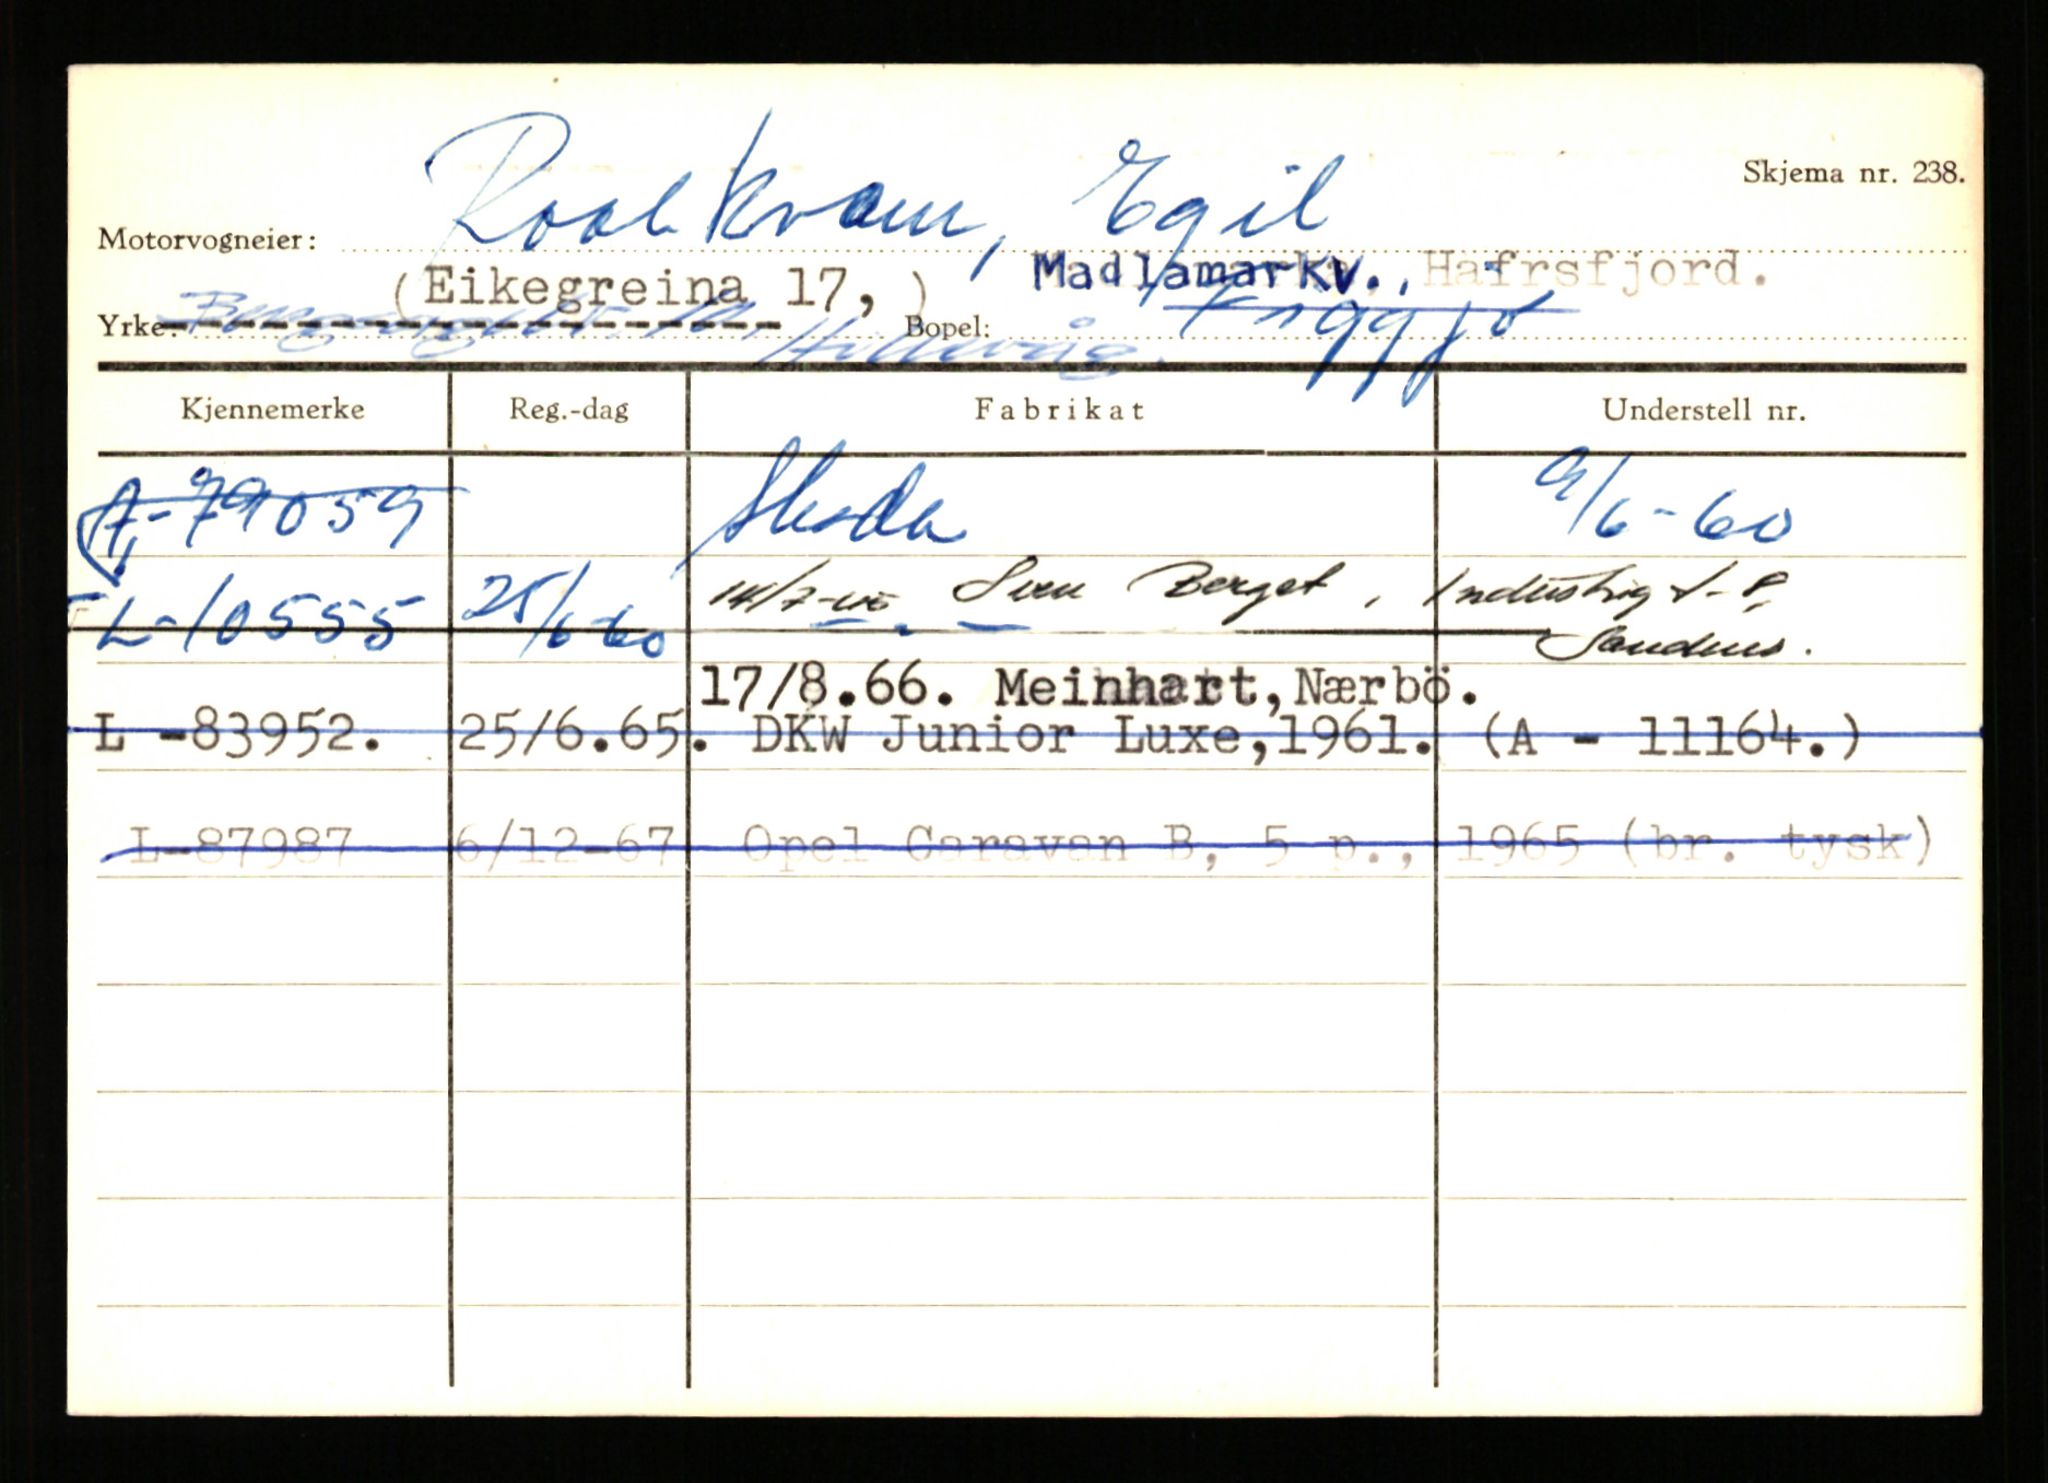 Skjema nr. 238.
Motorvogneier: Roalkvam, Egil
(Eikegreina 17, ) Madlamarkv., Hafrsfjord.
Yrke: Bopel: Figgjo
Hillevåg.
Kjennemerke Reg.-dag Fabrikat Understell nr.
A-79059 Skoda 9/6-60
L-10555 25/6-60 14/7-65 Sven Berget, Industrig
Sandnes.
17/8.66. Meinhart, Nærbö.
L -83952. 25/6.65. DKW Junior Luxe,1961. (A - 11164.)
L-87987 6/12-67 Opel Caravan B, 5 p., 1965 (br. tysk)